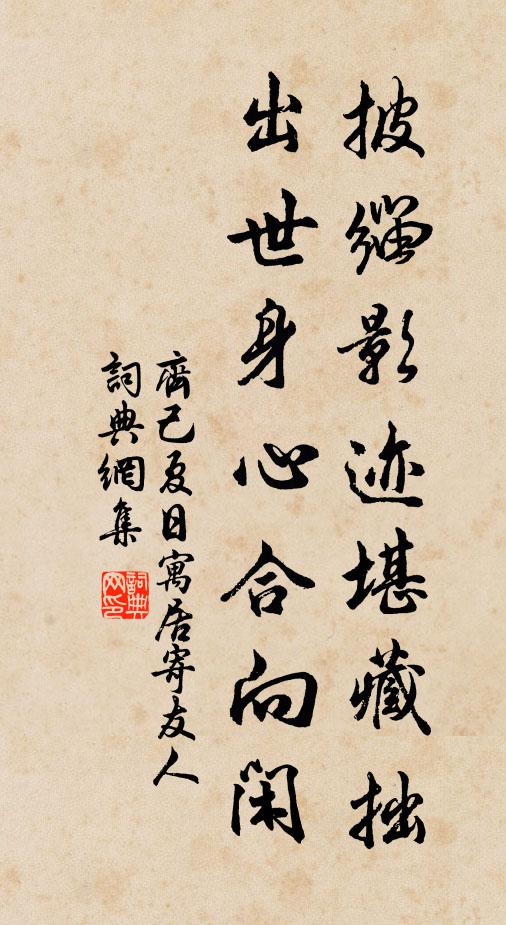 披緇影迹堪藏拙
出世身心合向閑
齊己夏日寓居寄友人
詞典網集
詞典网印